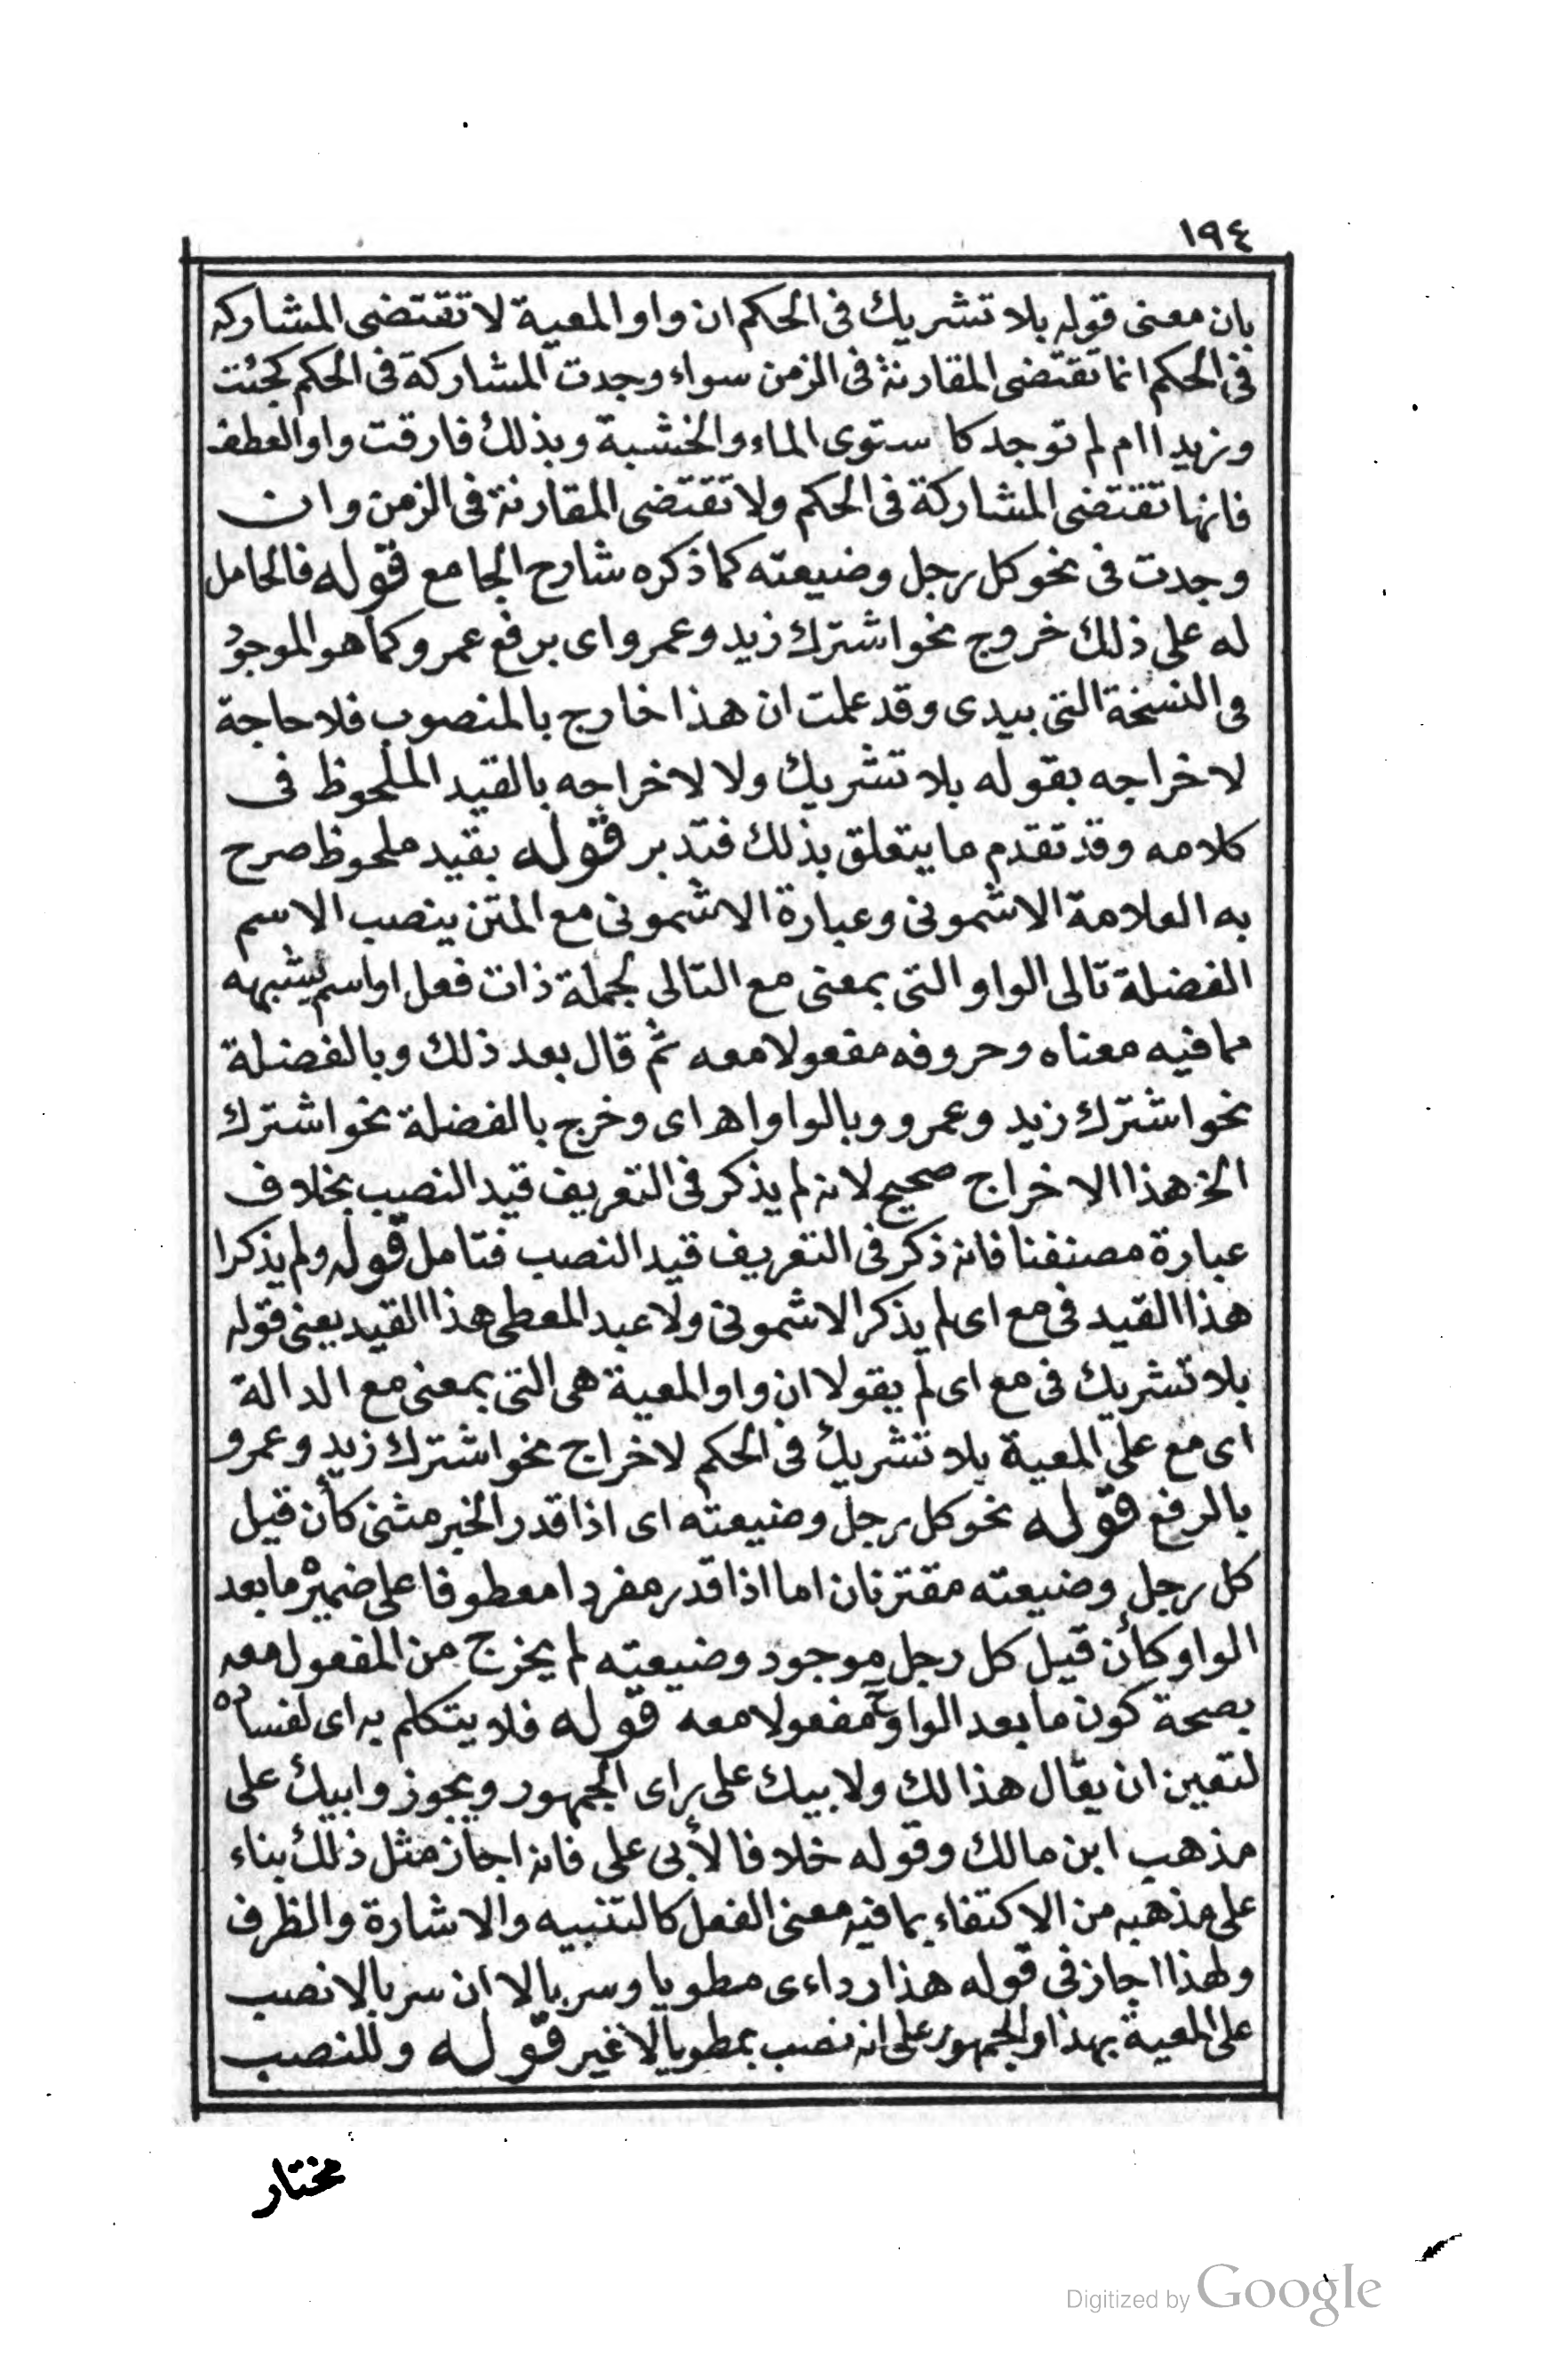 ١٩٤
بان معنى قوله بلا تشريك فى الحكم ان واو المعية لا تقتضى المشاركه
فى الحكم انما تقتضى المقارنة فى الزمن سواء وجدت المشاركة فى الحكم كجئت
وزيدا ام لم توجد كا ستوى الماء والخشبة وبذلك فارقت واو العطف
فانها تقتضى المشاركة فى الحكم ولا تقتضى المقارنة فى الزمن وان
وجدت فى نحو كل رجل وضيعته كما ذكره شارح الجامع قوله فالحامل
له على ذلك خروج نحو اشترك زيد وعمرو اى برفع عمرو كما هو الموجود
فى النسخة التى بيدى وقد علمت ان هذا خارج بالمنصوب فلا حاجة
لاخراجه بقوله بلا تشريك ولا لاخراجه بالقيد الملحوظ فى
كلامه وقد تقدم ما يتعلق بذلك فتدبر قوله بقيد ملحوظ صرح
به العلامة الاشمونى وعبارة الاشمونى مع المتن ينصب الاسم
الفضلة تالى الواو التى بمعنى مع التالى لجملة ذات فعل او اسم يشبهه
مما فيه معناه وحروفه مفعولا معه ثم قال بعد ذلك وبالفضلة
نحو اشترك زيد وعمرو وبالواو اه اى وخرج بالفضلة نحو اشترك
الخ هذا الاخراج صحيح لانه لم يذكر فى التعريف قيد النصب بخلاف
عبارة مصنفنا فانه ذكر فى التعريف قيد النصب فتامل قوله ولم يذكرا
هذا القيد فى مع اى لم يذكر الاشمونى ولا عبد المعطى هذا القيد يعنى قوله
بلا تشريك فى مع اى لم يقولا ان واو المعية هى التى بمعنى مع الدالة
اى مع على المعية بلا تشريك فى الحكم لاخراج نحو اشترك زيد وعمرو
بالرفع قوله نحو كل رجل وضيعته اى اذا قدر الخبر مثنى كأن قيل
كل رجل وضيعته مقترنان اما اذا قدر مفردا معطوفا على ضميره ما بعد
الواو كأن قيل كل رجل موجود وضيعته لم يخرج من المفعول معه
بصحة كون ما بعد الواو ح مفعولا معه قوله فلا يتكلم به اى لفساده
لتعين ان يقال هذا لك ولابيك على راى الجمهور ويجوز وابيك على
مذهب ابن مالك وقوله خلافا لأبى على فانه اجاز مثل ذلك بناء
على مذهبه من الاكتفاء بما فيه معنى الفعل كالتنبيه والاشارة والظرف
ولهذا اجاز فى قوله هذا رداءى مطويا وسربالا ان سربالا نصب
على المعية بهذا والجمهور على انه نصب بمطويا لا غير قوله وللنصب
مختار
Digitized by Google